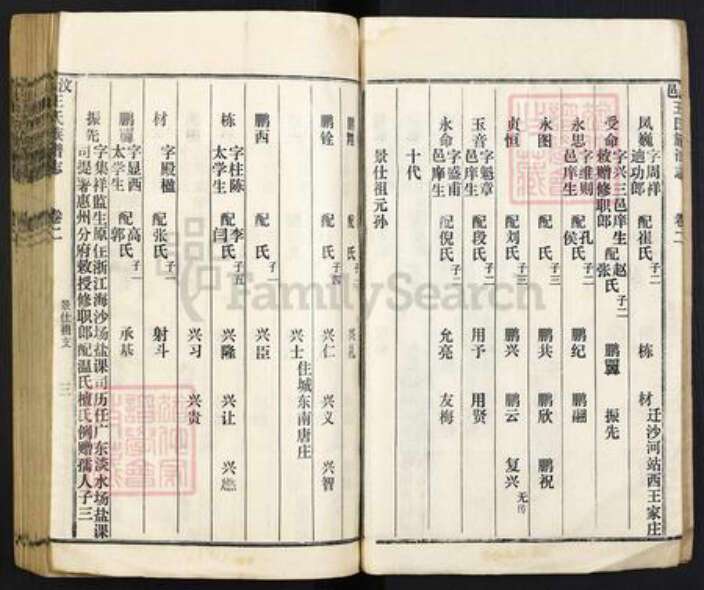 邑王氏族谱志 卷二
凤巍 字周祥 迪功郎 配崔氏 子二 栋 材 迁沙河站西王家庄
受命 字兴三 邑庠生 敕赠修职郎 配赵氏 张氏 子二 鹏翼 振先
永思 字维则 邑庠生 配孔氏 侯氏 子二 鹏纪 鹏翮
永图 配 氏 子三 鹏扶 鹏欣 鹏祝
贞恒 配刘氏 子三 鹏兴 鹏云 复兴 无传
玉音 字魁章 邑庠生 配段氏 子二 用予 用贤
永命 字盛甫 邑庠生 配倪氏 子二 允亮 友梅
十代
景仕祖元孙
鹏 配 氏 子 兴礼
鹏铨 配 氏 子四 兴仁 兴义 兴智
兴士 住城东南唐庄
鹏西 配 氏 子一 兴臣
栋 字柱陈 太学生 配李氏 闫氏 子五 兴隆 兴让 兴
兴习 兴贵
材 字殿楹 配张氏 子一 射斗
鹏 字显西 太学生 配高氏 郭氏 子一 承基
振先 字集祥 监生 原住浙江海沙场盐课司 历任广东淡水场盐课
司提署惠州分府 敕授修职郎 配温氏 檀氏 例赠孺人 子三
汶王氏族谱志 卷二 景仕祖支 三
FamilySearch